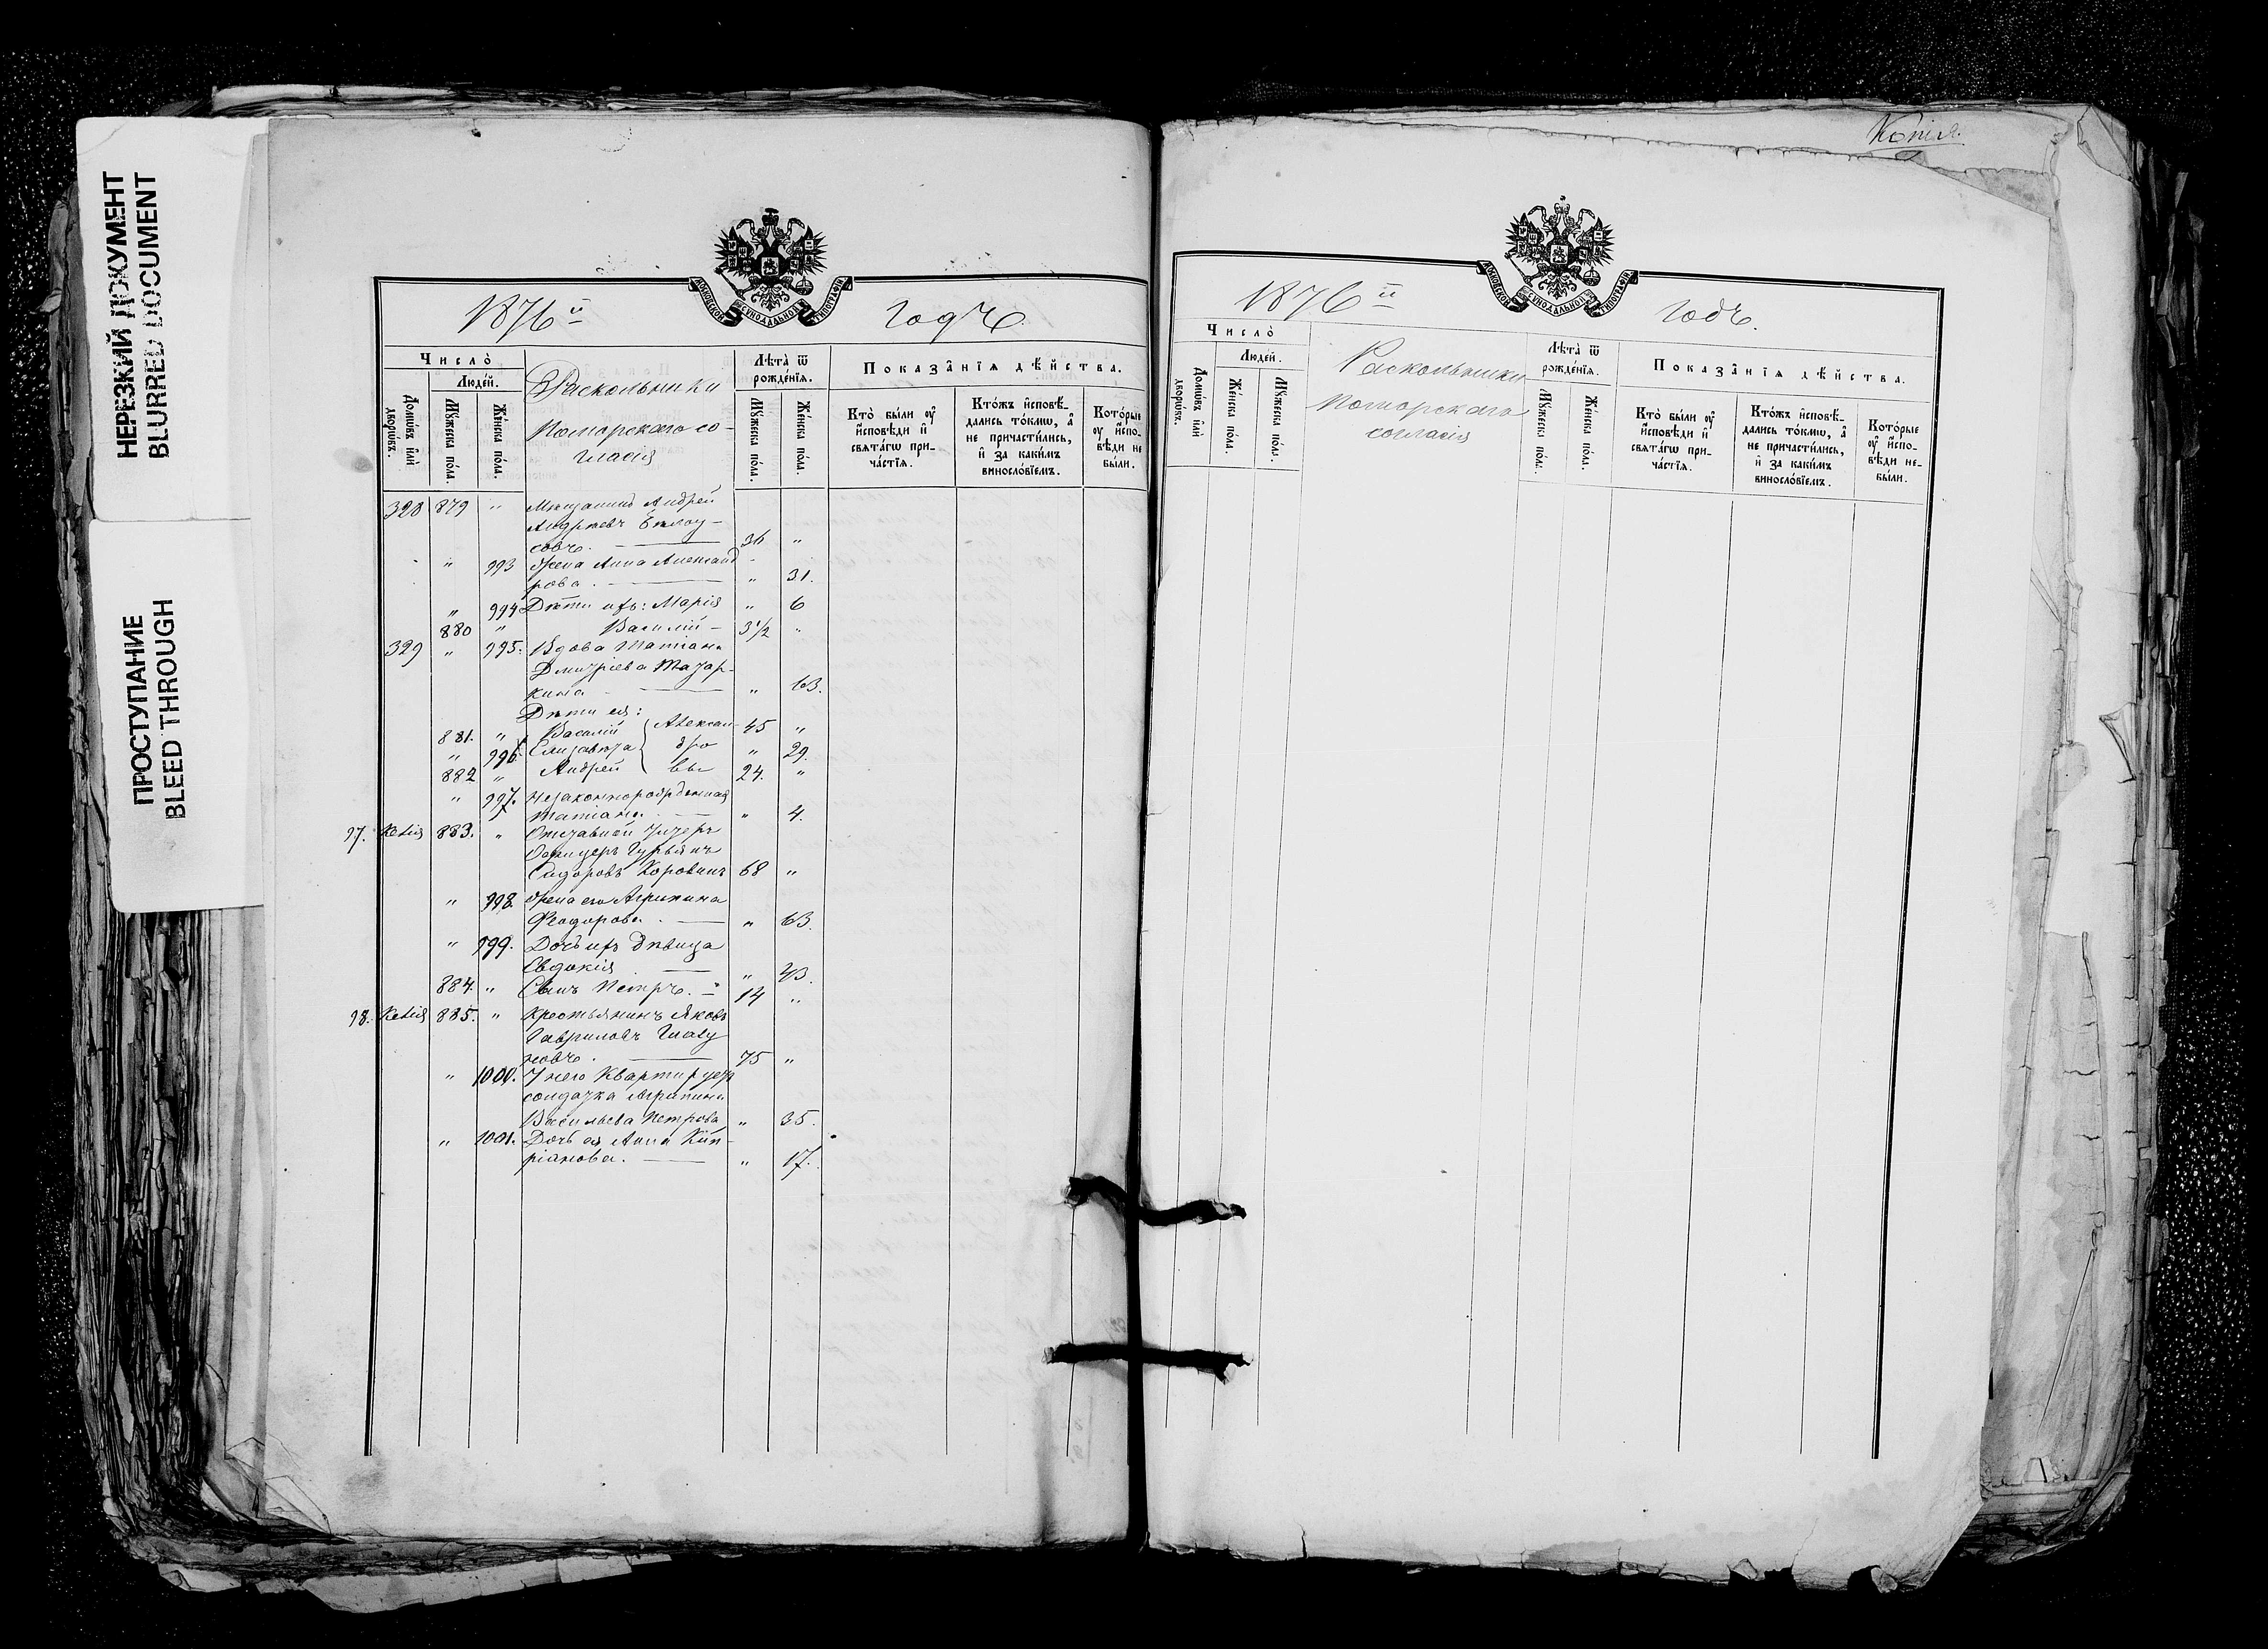 НЕРЕЗКИЙ ДОКУМЕНТ
BLURRED DOCUMENT
ПРОСТУПАНИЕ
BLEED THROUGH
МОСКОВСКОЙ СѴНОДАЛЬНОЙ ТИПОГРАФІИ
1876й Годъ
Число̀
Людéй.
Домѡ́въ и҆лѝ дворѡ́въ.
Мꙋ́жеска по́ла.
Же́нска по́ла.
Раскольники
Поморскаго со-
гласія
Лѣта̀ ѿ рожде́нїѧ.
Мꙋ́жеска по́ла.
Же́нска по́ла.
Показа̂нїѧ дѣ́йства.
Кто̀ бы́ли оу҆ и҆́сповѣди и҆ свѧта́гѡ при-
ча́стїѧ.
Кто́жъ и҆сповѣ́-
дались то́кмѡ, а҆
не причасти́лись,
и҆ за каки́мъ
винослóвїемъ.
Кото́рые
оу҆ и҆́спо-
вѣди не
бы́ли.
328 879 " Мѣщанинъ Андрей
Андреевъ Бѣлоу-
совъ. 36 "
" 993 Жена Анна Александ
рова. " 31.
" 994 Дѣти ихъ: Марія " 6
880 " Василій 3½ "
329 " 995. Вдова Татіана
Дмитріева
кина " 63.
Дѣти ея:
881. " Василій Алексан- 45 "
" 996. Елизавета дро " 29.
882 " Андрей вы 24. "
" 997. Незаконнорожденная
Татіана. " 4.
97. Келія 883. " Отставной Унтеръ
Офицеръ Гурьянъ
Сидоровъ Коровинъ 68 "
" 998. Жена его Агрипина
Ѳеодорова. " 63.
" 999. Дочь ихъ дѣвица
Евдокія " 43.
884. " Сынъ Петръ. 14 "
98. Келія 885. " Крестьянинъ Яковъ
Гавриловъ Глазу
новъ. 75 "
" 1000. У него квартируетъ
солдатка Агрипина
Васильева Петрова " 35.
" 1001. Дочь ея Анна Кип-
ріанова. " 17.
Копія.
МОСКОВСКОЙ СѴНОДАЛЬНОЙ ТИПОГРАФІИ
1876й Годъ.
Число̀
Людéй.
Домѡ́въ и҆лѝ дворѡ́въ.
Же́нска по́ла.
Мꙋ́жеска по́ла.
Раскольники
Поморскаго
согласія
Лѣта̀ ѿ рожде́нїѧ.
Мꙋ́жеска по́л.
Же́нска по́ла.
Показа̂нїѧ дѣ́йства.
Кто̀ бы́ли оу҆ и҆́сповѣди и҆ свѧта́гѡ при-
ча́стїѧ.
Кто́жъ и҆сповѣ́-
дались то́кмѡ, а҆
не причасти́лись,
и҆ за каки́мъ
винослóвїемъ.
Кото́рые
оу҆ и҆́спо-
вѣди не-
бы́ли.